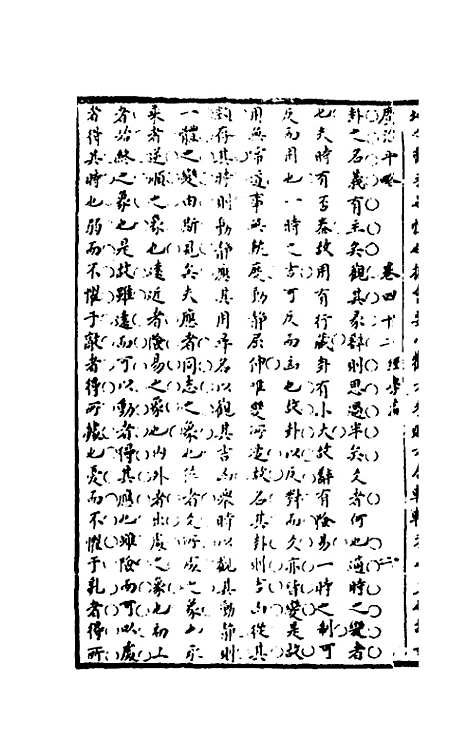 廣治平略 卷四十二 經學篇 二
卦之名義有主矣觀其彖辭則思過半矣爻者何也適時之變者
也夫時有否泰故用有行藏卦有小大故辭有險易一時之制可
反而用也一時之吉可反而凶也故卦以反對而爻亦皆變是故
用無常道事無軌度動靜屈伸唯變所適故名其卦則吉凶從其
類存其時則動靜應其用尋名以觀其吉凶舉時以觀其動靜則
一體之變由斯見矣夫應者同志之象也位者爻所處之象也承
乘者逆順之象也遠近者險易之象也內外者出處之象也初上
者始終之象也是故雖遠而可以動者得其應也雖險而可以處
者得其時也弱而不懼于敵者得所據也憂而不懼于亂者得所